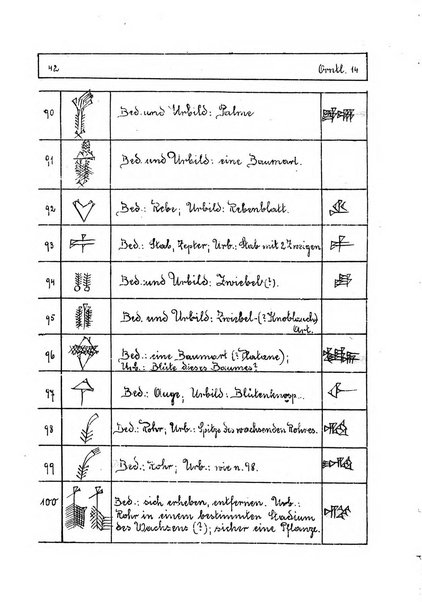 42 Orntl. 14
90 Bed. und Urbild: Palme
91 Bed. und Urbild: eine Baumart.
92 Bed.: Rebe; Urbild: Rebenblatt.
93 Bed.: Stab, Zepter; Urb.: Stab mit 2 Zweigen
94 Bed. und Urbild: Zwiebel (?).
95 Bed. und Urbild: Zwiebel-(? Knoblauch)
Art.
96 Bed.: eine Baumart (? Platane);
Urb.: Blüte dieses Baumes?
97 Bed.: Auge; Urbild: Blütenknosp..
98 Bed.: Rohr; Urb.: Spitze des wachsenden Rohres.
99 Bed.: Rohr; Urb.: wie n. 98.
100 Bed.: sich erheben, entfernen. Urb.:
Rohr in einem bestimmten Stadium
des Wachsens (?); sicher eine Pflanze.